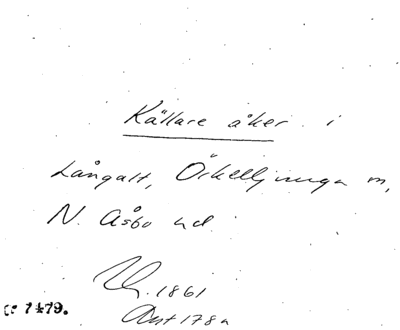 Källare åker i
Långalt, Örkelljunga sn,
N. Åsbo hd
1861
Avst 178a
7479.